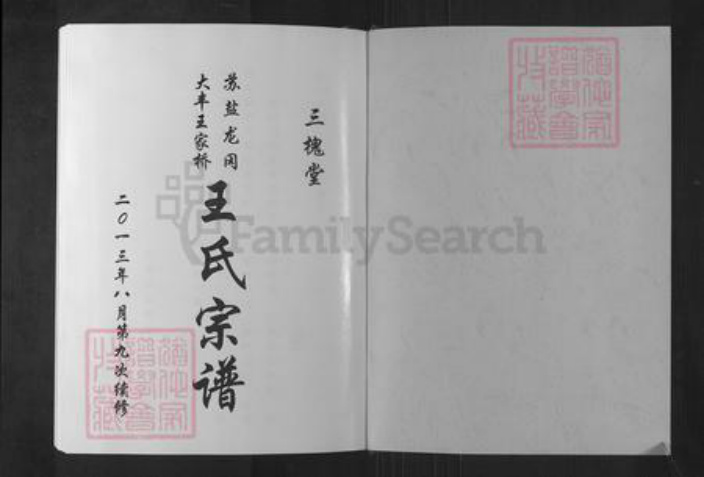 三槐堂
苏盐龙冈
大丰王家桥
王氏宗谱
二〇一三年八月第九次续修
FamilySearch